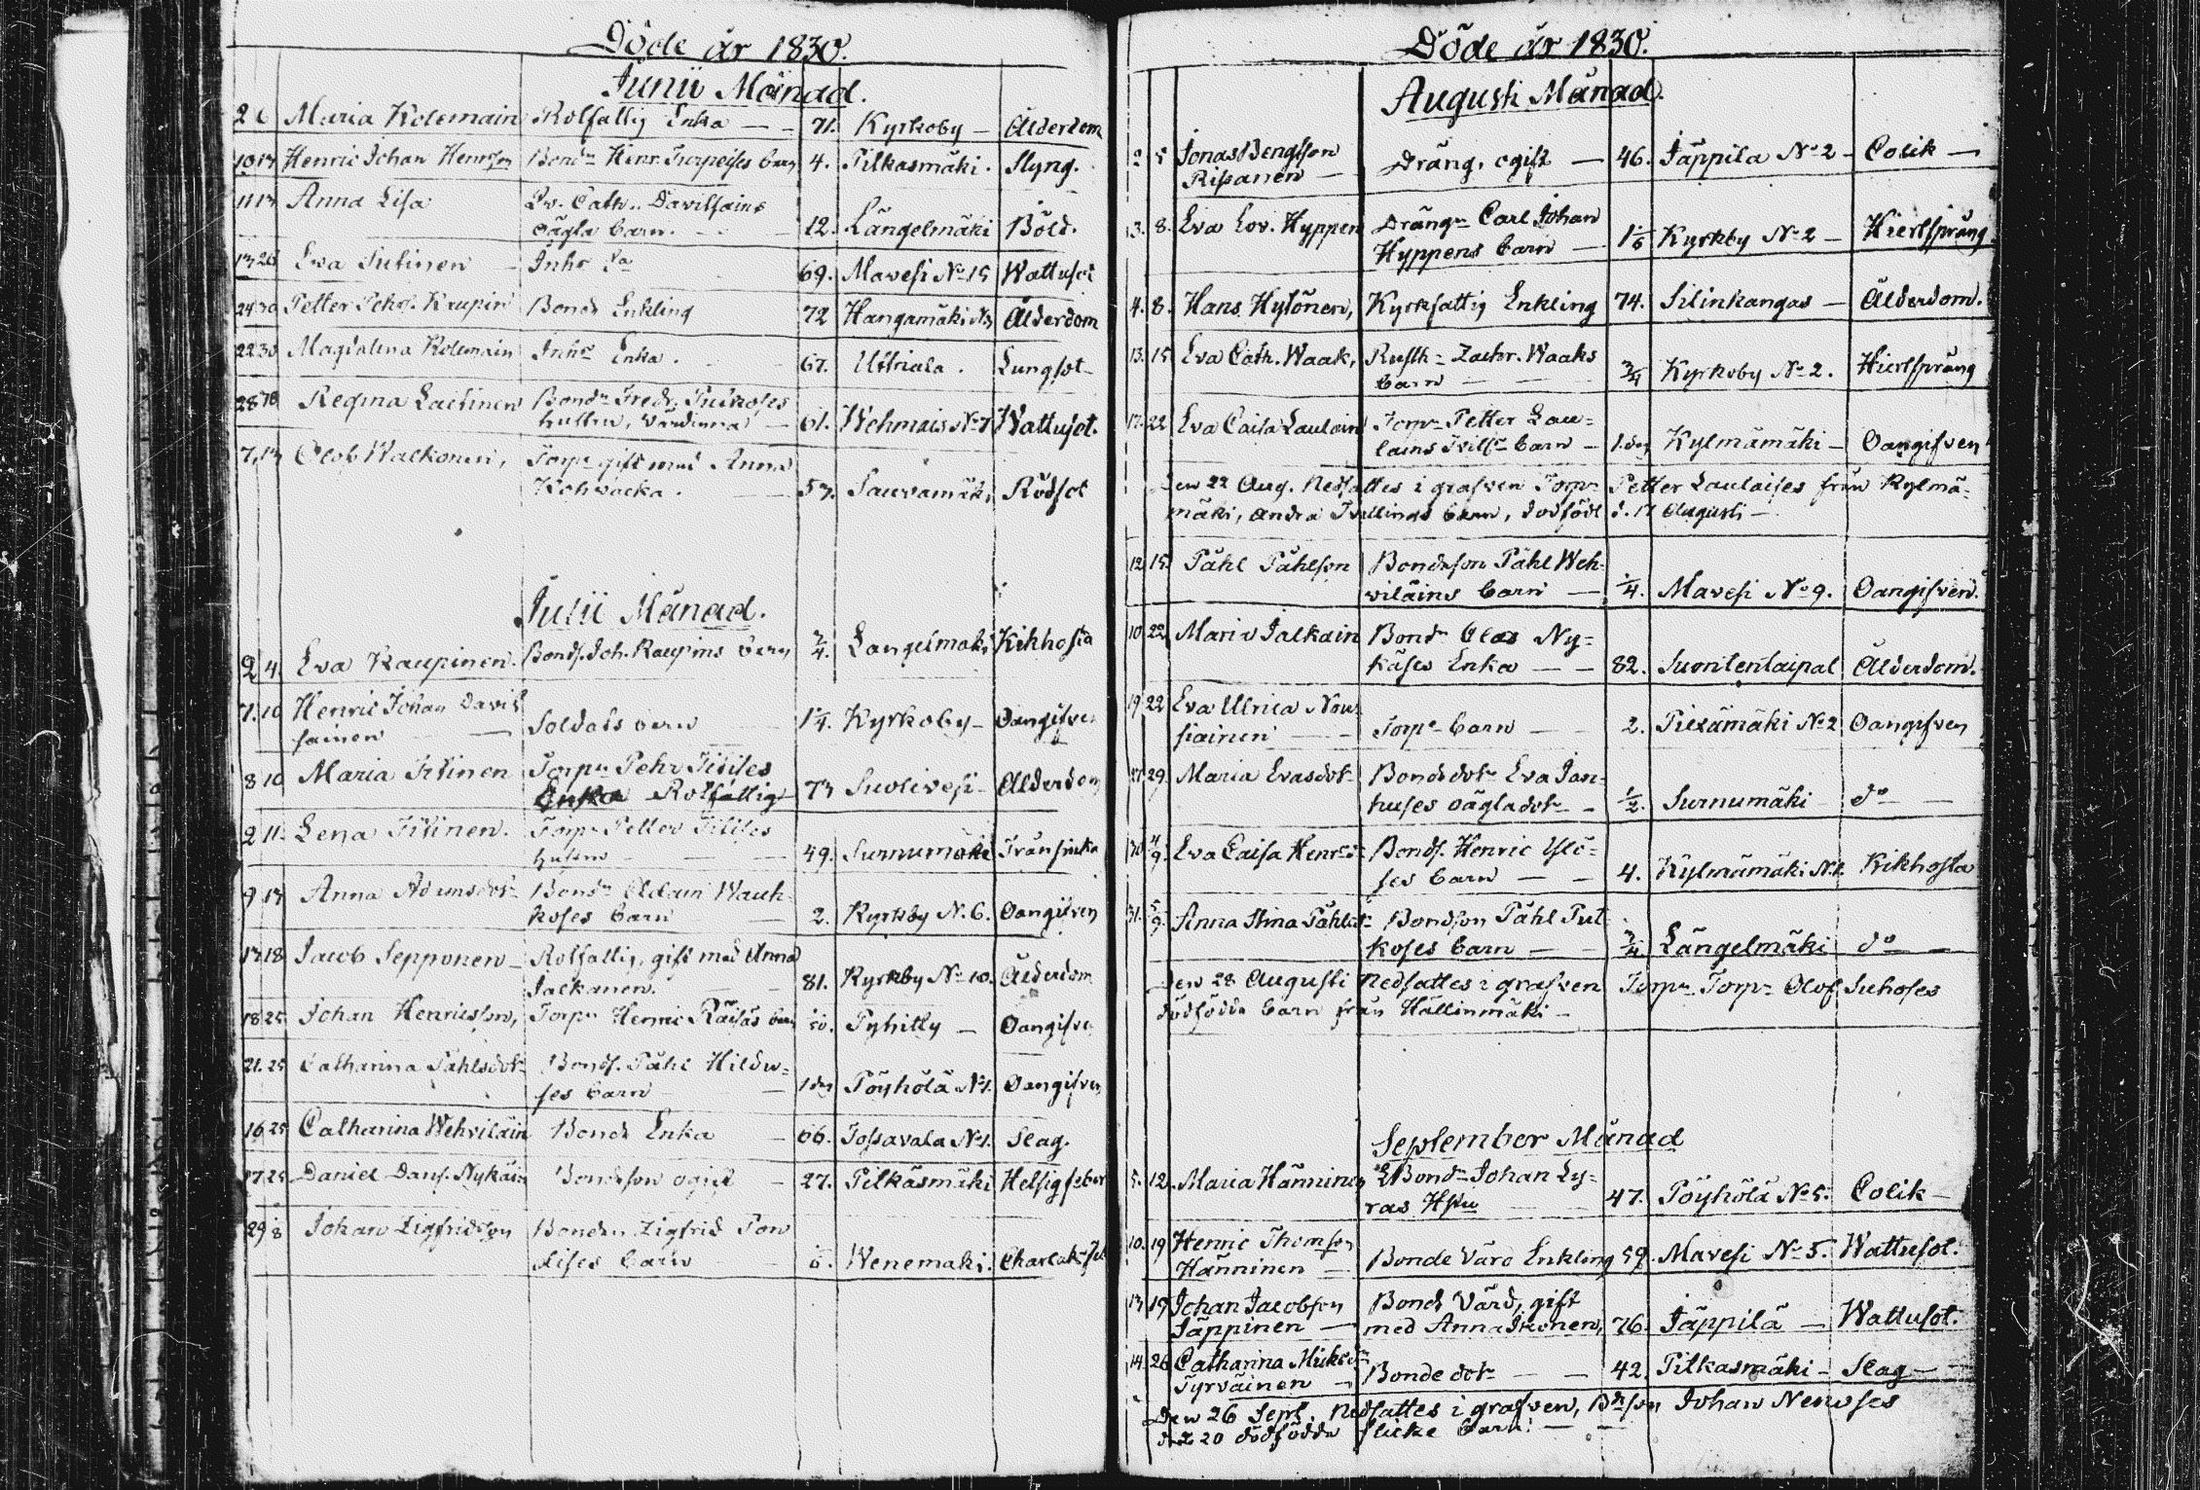 Döde år 1830.
Junii Månad.
2 6 Maria Kolemain Rotfattig Enka — 71. Kyrkoby — Ålderdom
10 13 Henric Johan Henrsson Bondn Henr. barn 4. Pilkasmäki. Styng.
11 13 Anna Lisa Davidsains
oägta barn. 12. Längelmäki Böld.
13 20 Eva Sutinen Inhs 69. Mavesi No 15 Wattusot
24 30 Petter Kaupin Bonde Enkling 72 Hangamäki Ålderdom
22 30 Magdalena Kolemain Inhs Enka. 67. Uttriala. Lungsot
28 Regina Laitinen Bondn Fredr.
hustru, Värdinna 61. Wehmais No 7 Wattusot.
7 13 Olof Walkonen, Torpr gift med Anna
57. Sauvamäki Rödsot
Julii Månad.
2 4. Eva Kaupinen. Bonds. Joh. Kaupins barn 3/4. Längelmäki Kikhosta
7. 10 Henric Johan David
sainen — Soldats barn 1 1/4. Kyrkoby — Oangifven
8 10 Maria Titinen Torpn Pehr Titises
Enka Rotfattig 73 Suolivesi — Ålderdom
9 11. Lena Titinen. Torpn Petter Titises
hustru 49. Surnumäki Trånsjuka
9 13 Anna Adamsdotr Bondn Adam Wauh-
koses barn 2. Kyrkby N. 6. Oangifven
13 18 Jacob Sepponen — Rotfattig, gift med Anna
Jalkanen. 81. Kyrkby No 10. Ålderdom
18 25 Johan Henricsson, Torpn Henric Räisäs barn Pyhitty — Oangifven
21. 25 Catharina Påhlsdotr Bonds. Påhl Hildu-
ses barn 1 dag Pöyhölä No 1. Oangifven
16 25 Catharina Wehviläin Bonde Enka 66. Jossavala No 1. Slag.
17. 25 Daniel Dans. Nykäin Bondeson ogift — 27. Pilkäsmäki Hetsigfeber
29 Johan Zigfridsson Bonden Zigfrid Pon
disес barn Wenemäki.
Döde år 1830.
Augusti Månad.
2 5 Jonas Bengtson
Rissanen — Dräng, ogift — 46. Jäppila No 2 — Colik —
3. 8. Eva Lov. Hyppen Drängn Carl Johan
Hyppens barn — 1/6 Kyrkby No 2 — Hiertsprång
4. 8. Hans Hytönen, Kyrkfattig Enkling 74. Silinkangas — Ålderdom.
13. 15 Eva Cath. Waak, Rusth. Zachr. Waaks
barn — — 3/4 Kyrkoby No 2. Hiertsprång
17. 22 Eva Caisa Laulain Torpn Petter Lau-
lains Tvill: barn — 1. dag Kylmämäki — Oangifven
Den 22 Aug. Nedsattes i grafven Torpn Petter Laulaises från Kylmä-
mäki, andra Tvillings barn, dödfödt d. 17 Augusti —
12 15. Påhl Påhlson Bondeson Påhl Weh-
viläins barn — 1/4. Mavesi No 9. Oangifven.
10 22 Maria Jalkain Bondn Clas Ny-
käses Enka — — 82. Suontentaipal Ålderdom.
19. 22 Eva Ulrica Nou-
siainen — — Torpn barn — — 2. Piexämäki No 2 Oangifven
27 29. Maria Evasdotr Bondedotr Eva Jan-
huses oägta dotr — 1/2. Surnumäki — do —
30 4/9. Eva Caisa Henrsdr Bonds. Henric Ylö-
ses barn — — 4. Kylmämäki N. 1. Kikhosta
31. 5/9 Anna Stina Påhlsdr Bondson Påhl Put-
koses barn — — 3/4 Längelmäki do —
Den 28 Augusti Nedsattes i grafven Torpn Torpn Olof Suhoses
dödfödda barn från Hällinmäki —
September Månad
5. 12. Maria Hänninen Bondn Johan Ly-
ras Hstu — 47. Pöyhölä No 5. Colik —
10. 19 Henric Thomsson
Hänninen — Bonde Väro Enkling 59. Mavesi No 5. Wattusot.
13 19 Johan Jacobson
Jäppinen — Bonde Värd, gift
med Anna Ikonen, 76. Jäppilä — Wattusot.
14. 26 Catharina Micksdr
Tyrväinen — Bonde dotr — — 42. Pilkasmäki — Slag —
Den 26 Sept. Nedsattes i grafven, Bdeson Johan Nenoses
d. 20 dödfödda flicke barn. —